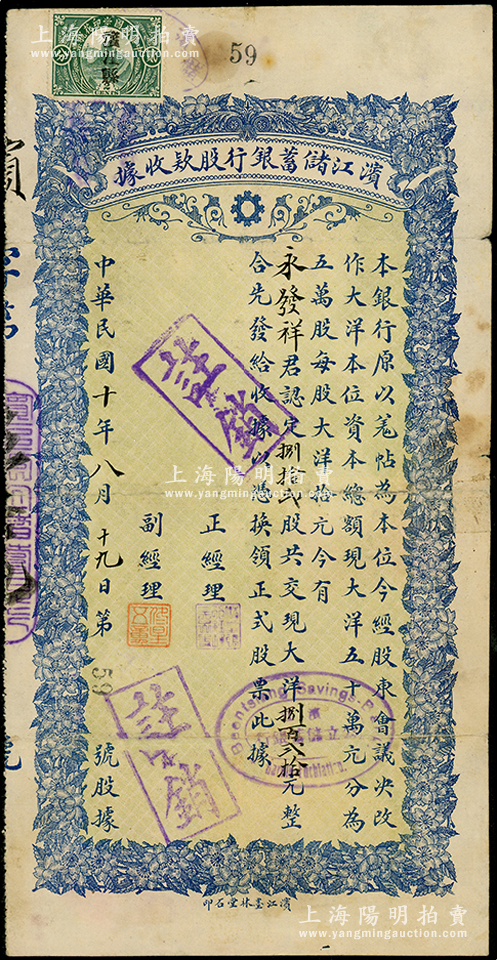 上海陽明拍賣
www.yangmingauction.com
59
濱江儲蓄銀行股款收據
本銀行原以羌帖為本位今經股東會議決改
作大洋本位資本總額現大洋五十萬元分為
五萬股每股大洋拾元今有
永發祥君認定捌拾弍股共交現大洋捌百弍拾元整
合先發給收據以憑換領正式股票此據
正經理
副經理
中華民國十年八月十九日第59號股據
註銷
註銷
上海陽明拍賣
www.yangmingauction.com
Savings
濱江墨林堂石印
上海陽明拍賣
www.yangmingauction.com